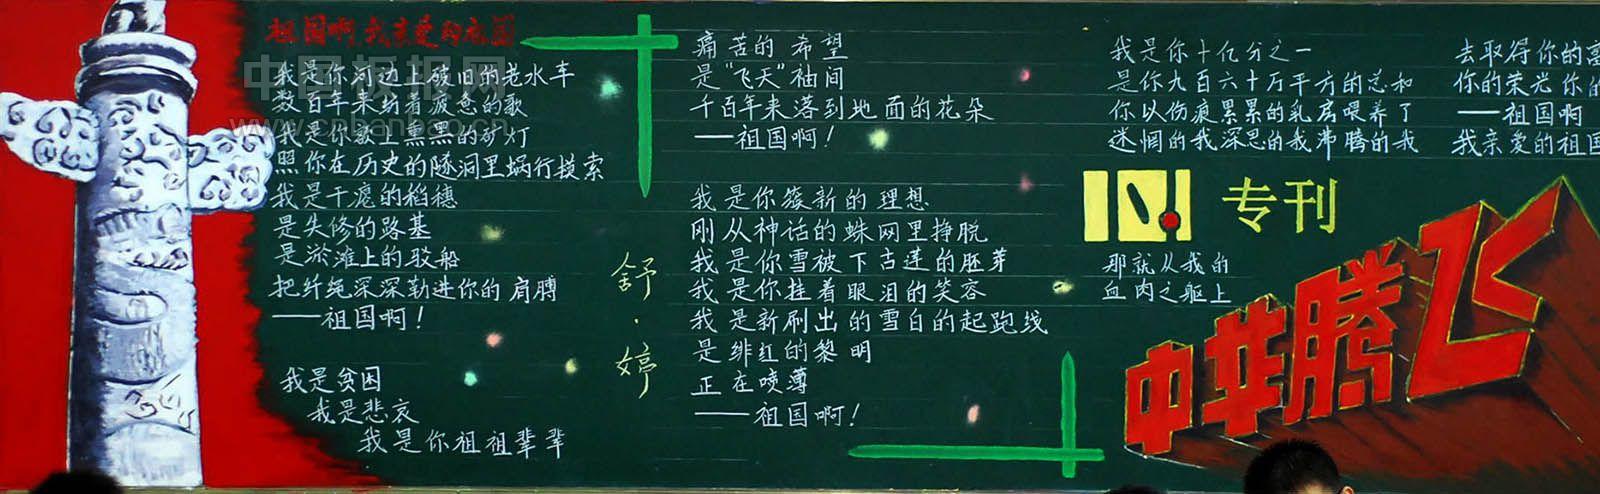 祖国啊,我亲爱的祖国
我是你河边上破旧的老水车
数百年来纺着疲惫的歌
我是你额上熏黑的矿灯
照你在历史的隧洞里蜗行摸索
我是干瘪的稻穗
是失修的路基
是淤滩上的驳船
把纤绳深深勒进你的肩膊
——祖国啊!
我是贫困
我是悲哀
我是你祖祖辈辈
舒·婷
痛苦的希望
是“飞天”袖间
千百年来落到地面的花朵
——祖国啊!
我是你簇新的理想
刚从神话的蛛网里挣脱
我是你雪被下古莲的胚芽
我是你挂着眼泪的笑容
我是新刷出的雪白的起跑线
是绯红的黎明
正在喷薄
——祖国啊!
我是你十亿分之一
是你九百六十万平方的总和
你以伤痕累累的乳房喂养了
迷惘的我深思的我沸腾的我
专刊
那就从我的
血肉之躯上
去取得你的富
你的荣光 你的
——祖国啊
我亲爱的祖国
中华腾飞
中国板报网
www.cnbanbao.cn